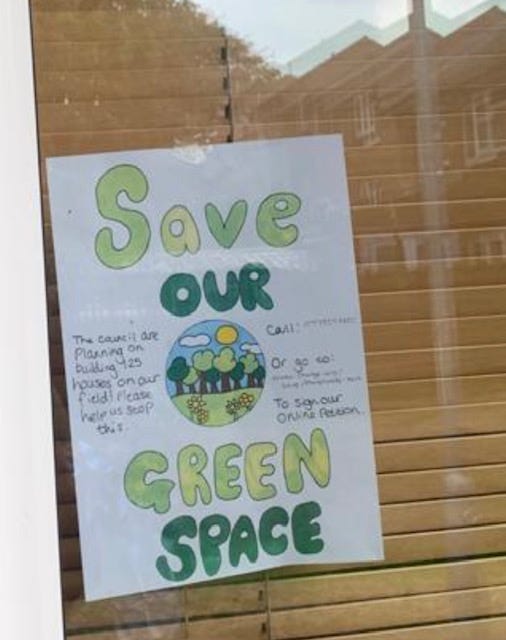 Save
OUR
The council are
Planning on
building 125
houses on our
field! Please
help us stop
this.
Call:
Or go to:
To sign our
Online Petition.
GREEN
SPACE